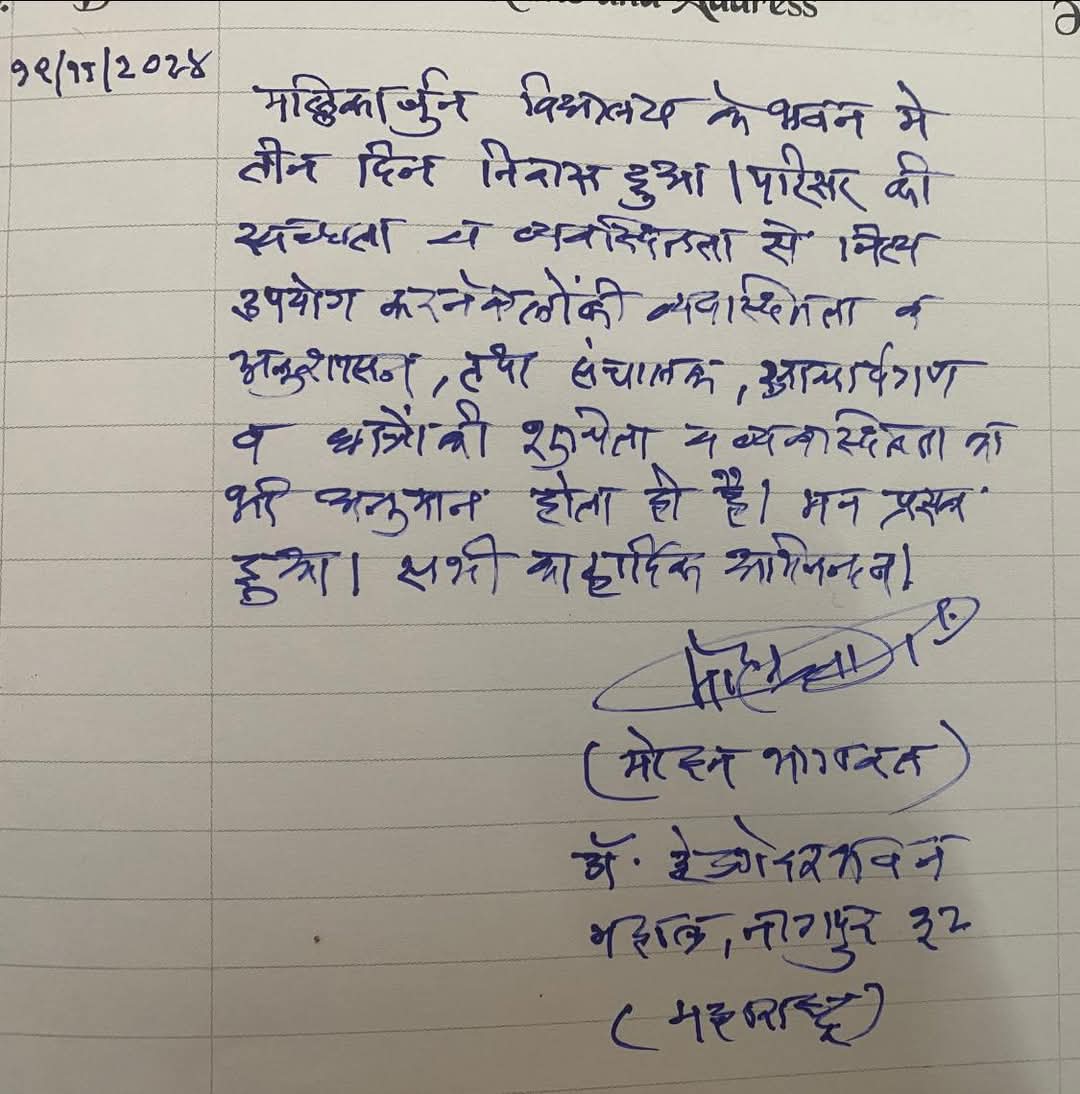 and Address
१९/११/२०२४
मल्लिकार्जुन विद्यालय के भवन मे
तीन दिन निवास हुआ। परिसर की
स्वच्छता व व्यवस्थितता से नित्य
उपयोग करनेवालों की व्यवस्थितता व
अनुशासन, तथा संचालक, आचार्यगण
व छात्रों की शुचिता व व्यवस्थितता का
भी अनुमान होता ही है। मन प्रसन्न
हुआ। सभी का हार्दिक अभिनन्दन।
(मोहन भागवत)
डॉ. हेडगेवार भवन
महाल, नागपुर ३२
(महाराष्ट्र)